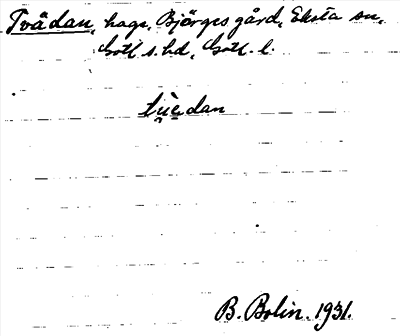 Tvådan, hage, Björges gård, Eksta sn,
Gotl s. hd, Gotl. l.
B. Bolin. 1931.